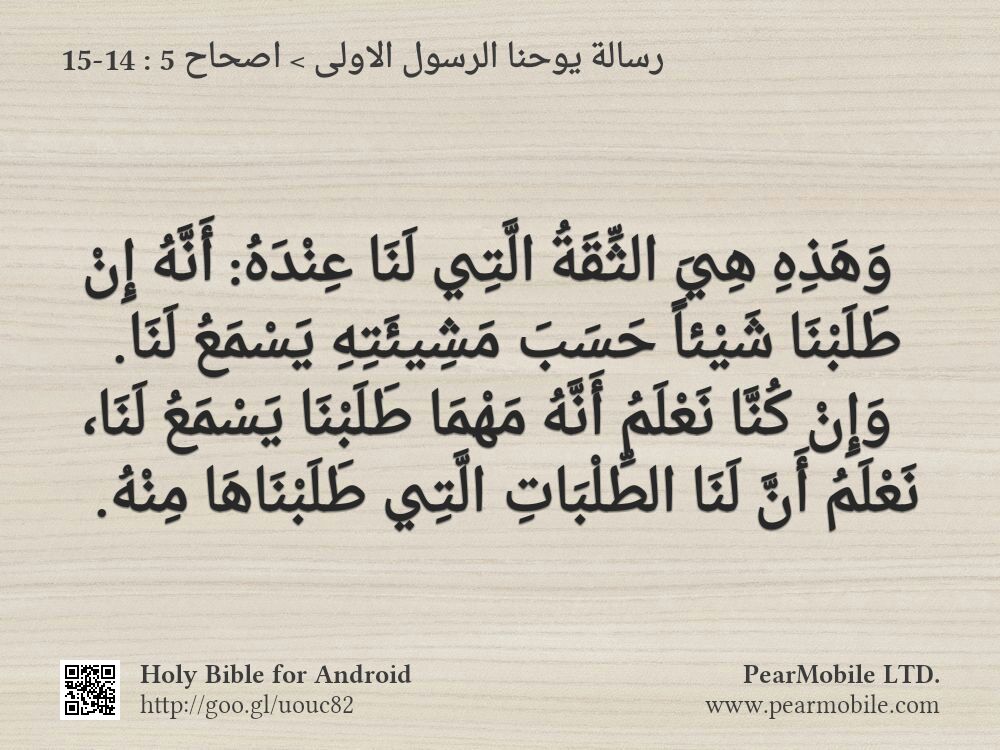 رسالة يوحنا الرسول الاولى > اصحاح 5 : 14-15
وَهَذِهِ هِيَ الثِّقَةُ الَّتِي لَنَا عِنْدَهُ: أَنَّهُ إِنْ
طَلَبْنَا شَيْئاً حَسَبَ مَشِيئَتِهِ يَسْمَعُ لَنَا.
وَإِنْ كُنَّا نَعْلَمُ أَنَّهُ مَهْمَا طَلَبْنَا يَسْمَعُ لَنَا،
نَعْلَمُ أَنَّ لَنَا الطِّلْبَاتِ الَّتِي طَلَبْنَاهَا مِنْهُ.
Holy Bible for Android
http://goo.gl/uouc82
PearMobile LTD.
www.pearmobile.com